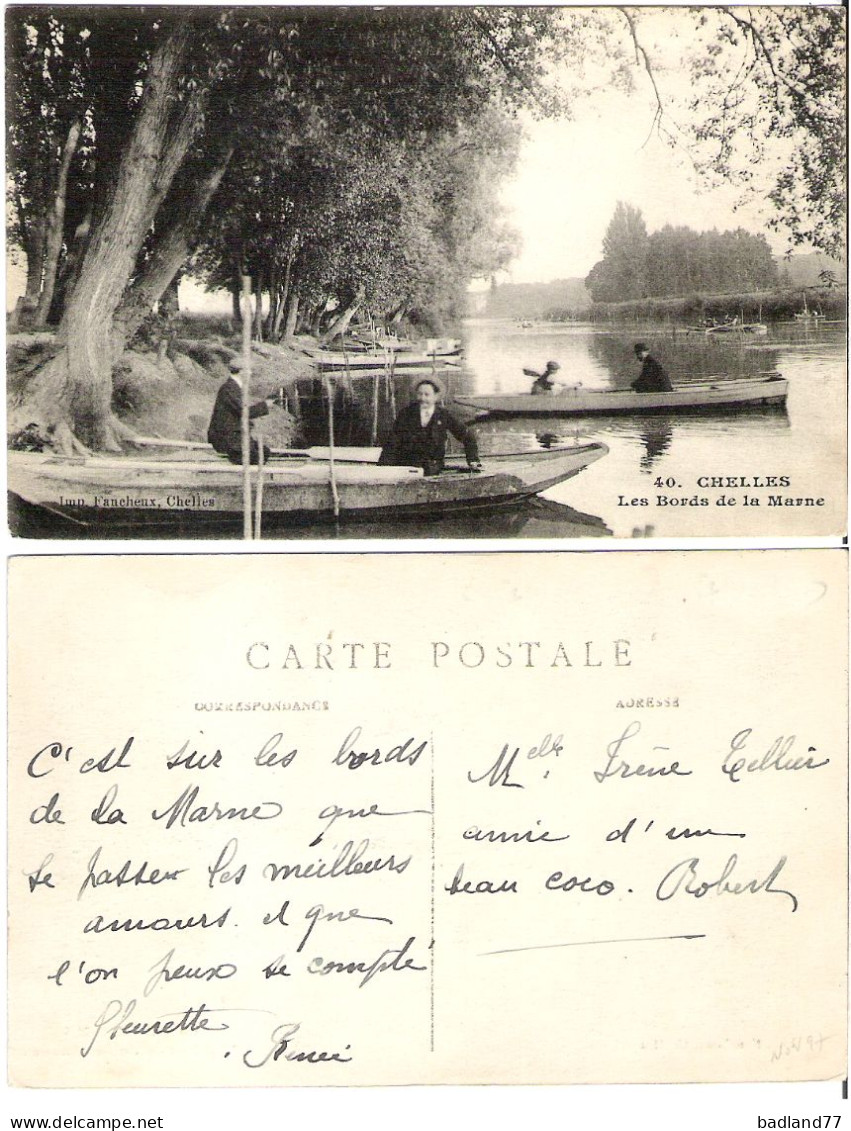 40. CHELLES
Les Bords de la Marne
Imp. Faucheux, Chelles
CARTE POSTALE
CORRESPONDANCE
ADRESSE
C'est sur les bords
de la Marne que
se passer les meilleurs
amours. et que
l'on peux se compté
fleurette
René
Melle. Irène Tellier
amie d'un
beau coco. Robert
badland77